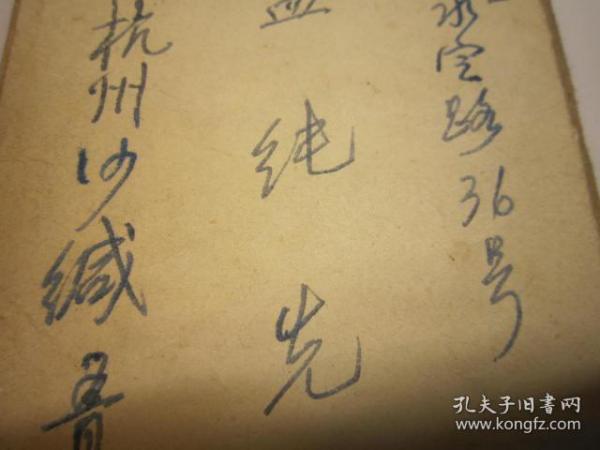 永定路36号
纯先
杭州沙缄
孔夫子旧书网
www.kongfz.com